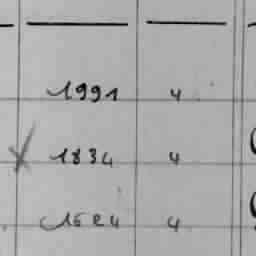 1991 4
1834 4
1524 4